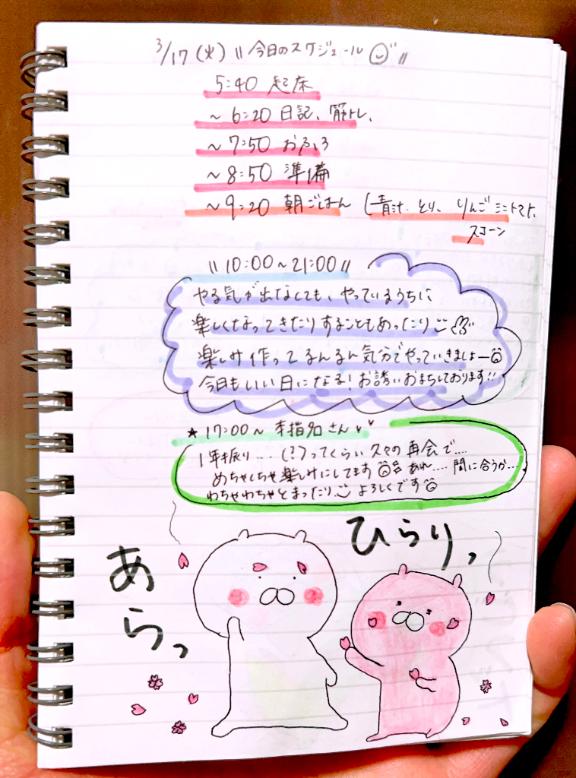 3/17(火) "今日のスケジュール"
5:40 起床
~6:20 日記、筋トレ、
~7:50 おふろ
~8:50 準備
~9:20 朝ごはん (青汁、とり、りんご ミニトマト、
スコーン
"10:00~21:00"
やる気が出なくても、やっているうちに
楽しくなってきたりすることもあったり
楽しみ作ってるんるん気分でやっていきましょー
今日もいい日になる!お誘いおまちしております!!
★17:00~ 本指名さん♥♥
1年振り...(?)ってくらい 久々の再会で...
めちゃくちゃ楽しみにしてます あれ.... 間に合うか...
わちゃわちゃとまったり よろしくです
ひらりっ
あらっ